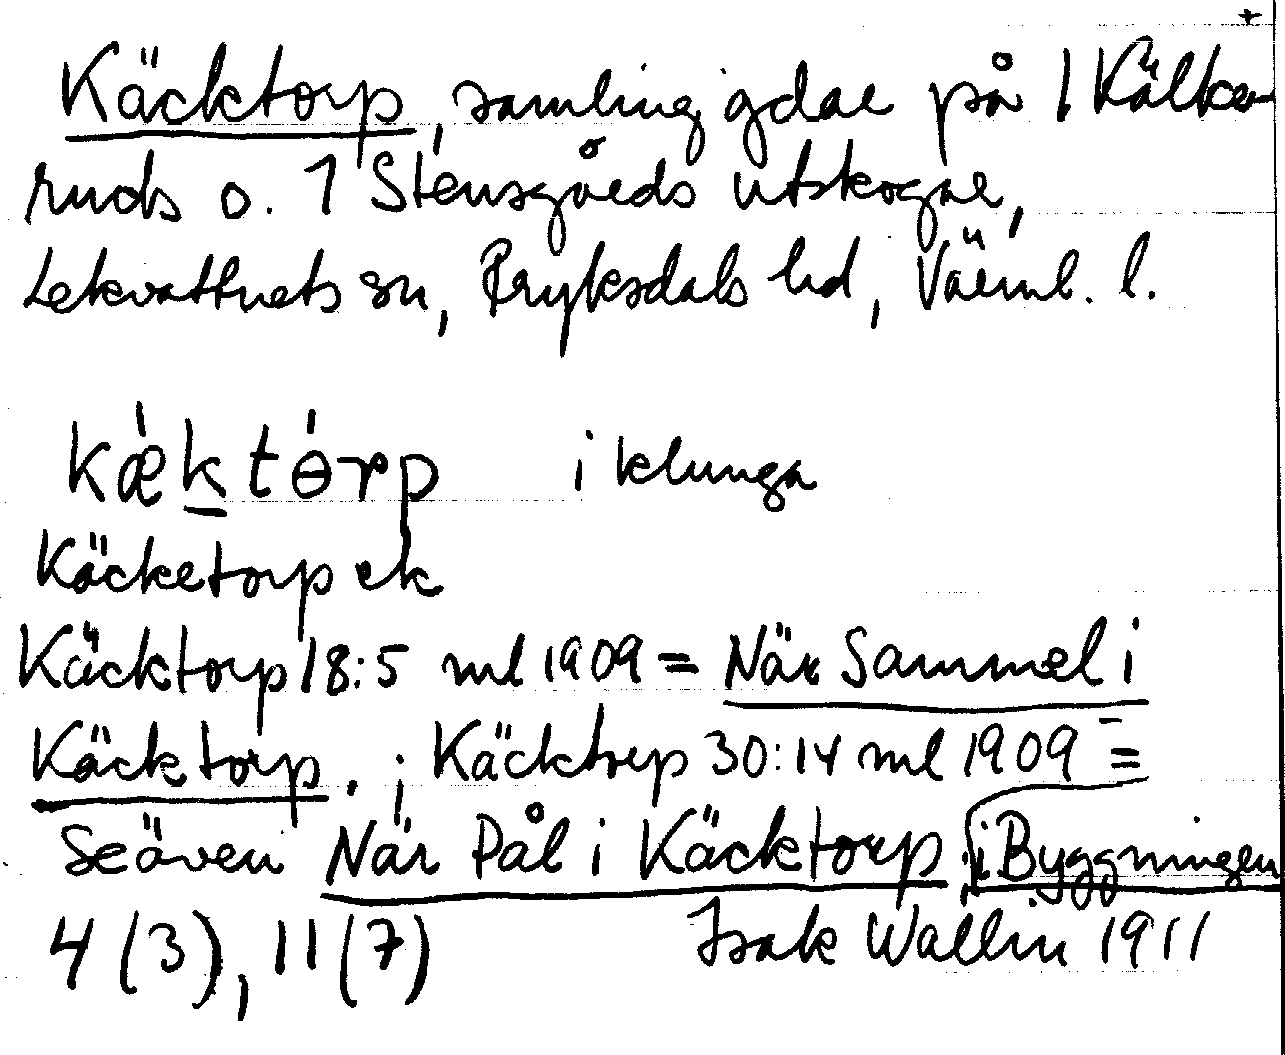 Käcktorp, samling gdar på 1 Kälke
ruds o. 1 Stensgårds utskogar,
Lekvattnets sn, Fryksdals hd, Värml. l.
kæ̀ktɵ̀rp i klunga
Käcketorp ek
Käcktorp 18:5 ml 1909 = När Sammel i
Käcktorp. ; Käcktorp 30:14 ml 1909 =
Se även När Pål i Käcktorp, i Byggningen
4 (3), 11 (7) Isak Wallin 1911